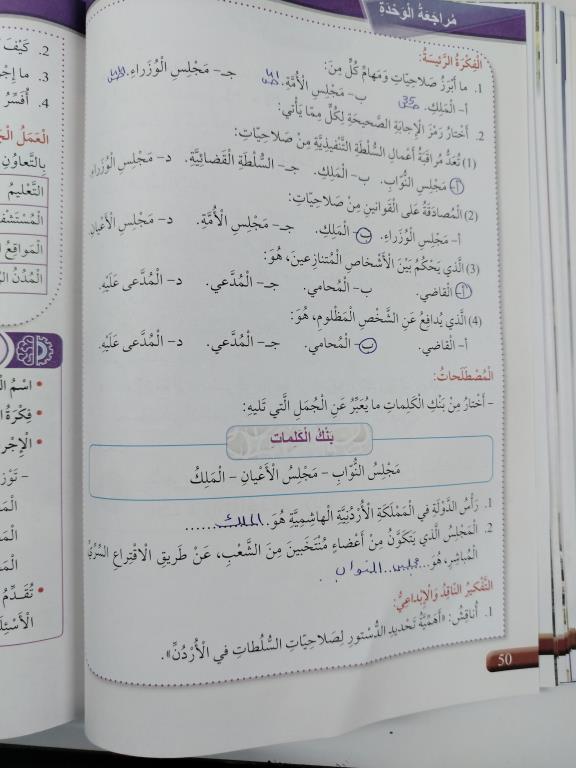 مُراجَعَةُ الْوَحْدَةِ
الْفِكْرَةُ الرَّئيسَةُ:
1. ما أَبْرَزُ صَلاحِيّاتِ وَمَهامِّ كُلٍّ مِنَ:
أ- الْمَلِكِ. ص35 ب- مَجْلِسِ الْأُمَّةِ. جـ- مَجْلِسِ الْوُزَراءِ.
2. أَخْتارُ رَمْزَ الْإِجابَةِ الصَّحيحَةِ لِكُلٍّ مِمّا يَأْتي:
(1) تُعَدُّ مُراقَبَةُ أَعْمالِ السُّلْطَةِ التَّنْفيذِيَّةِ مِنْ صَلاحِيّاتِ:
أ- مَجْلِسِ النُّوّابِ. ب- الْمَلِكِ. جـ- السُّلْطَةِ الْقَضائِيَّةِ. د- مَجْلِسِ الْوُزَراءِ.
(2) الْمُصادَقَةُ عَلى الْقَوانينِ مِنْ صَلاحِيّاتِ:
أ- مَجْلِسِ الْوُزَراءِ. ب- الْمَلِكِ. جـ- مَجْلِسِ الْأُمَّةِ. د- مَجْلِسِ الْأَعْيانِ.
(3) الَّذي يَحْكُمُ بَيْنَ الْأَشْخاصِ الْمُتَنازِعينَ، هُوَ:
أ- الْقاضي. ب- الْمُحامي. جـ- الْمُدَّعي. د- الْمُدَّعى عَلَيْهِ.
(4) الَّذي يُدافِعُ عَنِ الشَّخْصِ الْمَظْلومِ، هُوَ:
أ- الْقاضي. ب- الْمُحامي. جـ- الْمُدَّعي. د- الْمُدَّعى عَلَيْهِ.
الْمُصْطَلَحاتُ:
- أَخْتارُ مِنْ بَنْكِ الْكَلِماتِ ما يُعَبِّرُ عَنِ الْجُمَلِ الَّتي تَليهِ:
بَنْكُ الْكَلِماتِ
مَجْلِسُ النُّوّابِ - مَجْلِسُ الْأَعْيانِ - الْمَلِكُ
1. رَأْسُ الدَّوْلَةِ في الْمَمْلَكَةِ الْأُرْدُنِيَّةِ الْهاشِمِيَّةِ هُوَ... الملك ........
2. الْمَجْلِسُ الَّذي يَتَكَوَّنُ مِنْ أَعْضاءٍ مُنْتَخَبينَ مِنَ الشَّعْبِ، عَنْ طَريقِ الِاقْتِراعِ السِّرِّيِّ
الْمُباشِرِ، هُوَ... مجلس النواب .
التَّفْكيرُ النّاقِدُ وَالْإِبْداعِيُّ:
1. أُناقِشُ: «أَهَمِّيَّةُ تَحْديدِ الدُّسْتورِ لِصَلاحِيّاتِ السُّلُطاتِ في الْأُرْدُنِّ».
50
2. كَيْفَ
3. ما
4. أُفَسِّرُ
الْعَمَلُ
بِالتَّعاوُنِ
التَّعْليمُ
الْمَواقِعُ
الْمُدُنُ
• اسْمُ
• فِكْرَةُ
• الْإِجْر
- تَوْز
الْم
الْم
الْم
• تُقَدِّمُ
الْأَسْئِلَ